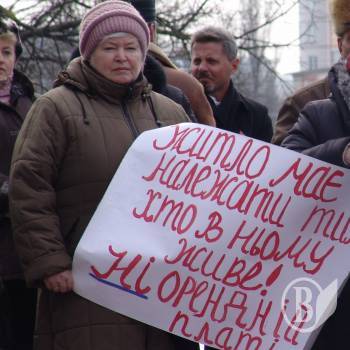 ЖИТЛО МАЄ
НАЛЕЖАТИ ТИМ
ХТО В НЬОМУ
ЖИВЕ!
Ні ОРЕНДНІЙ
ПЛАТІ
В